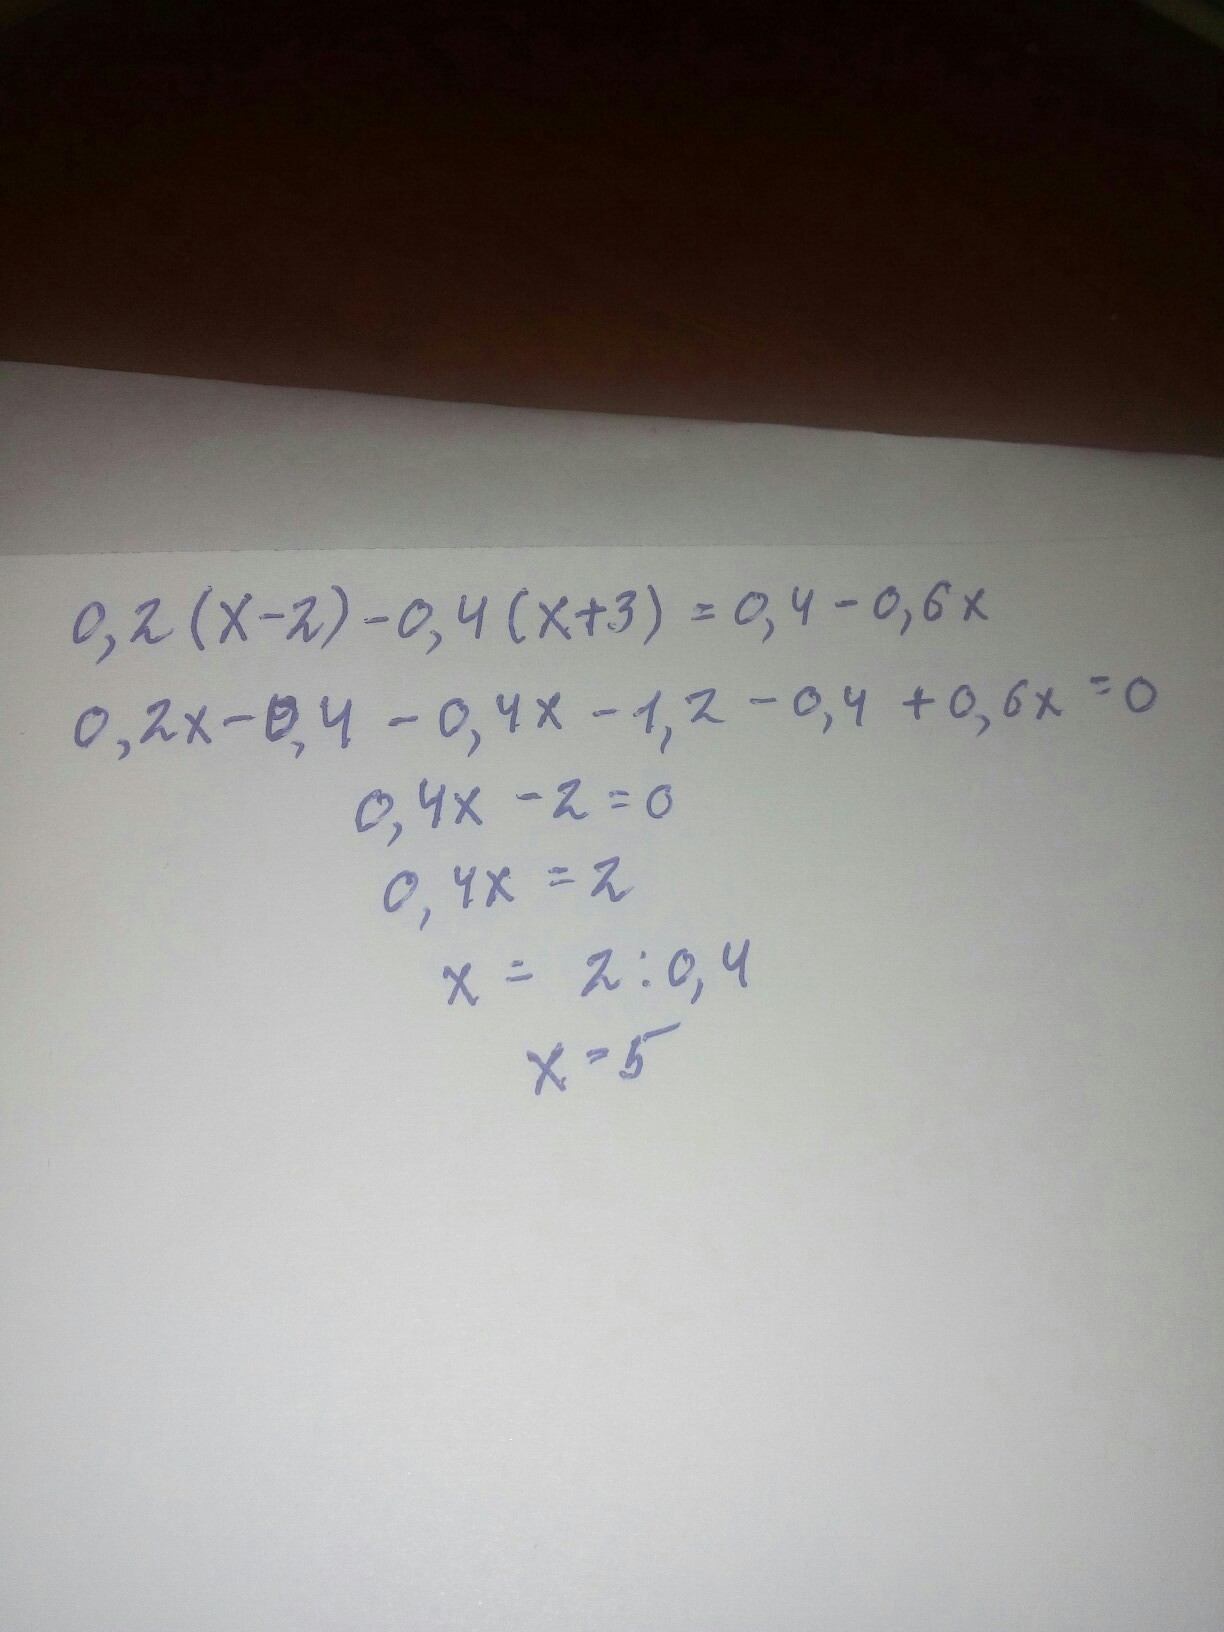 0,2(x-2)-0,4(x+3)=0,4-0,6x
0,2x-0,4-0,4x-1,2-0,4+0,6x=0
0,4x-2=0
0,4x=2
x=2:0,4
x=5